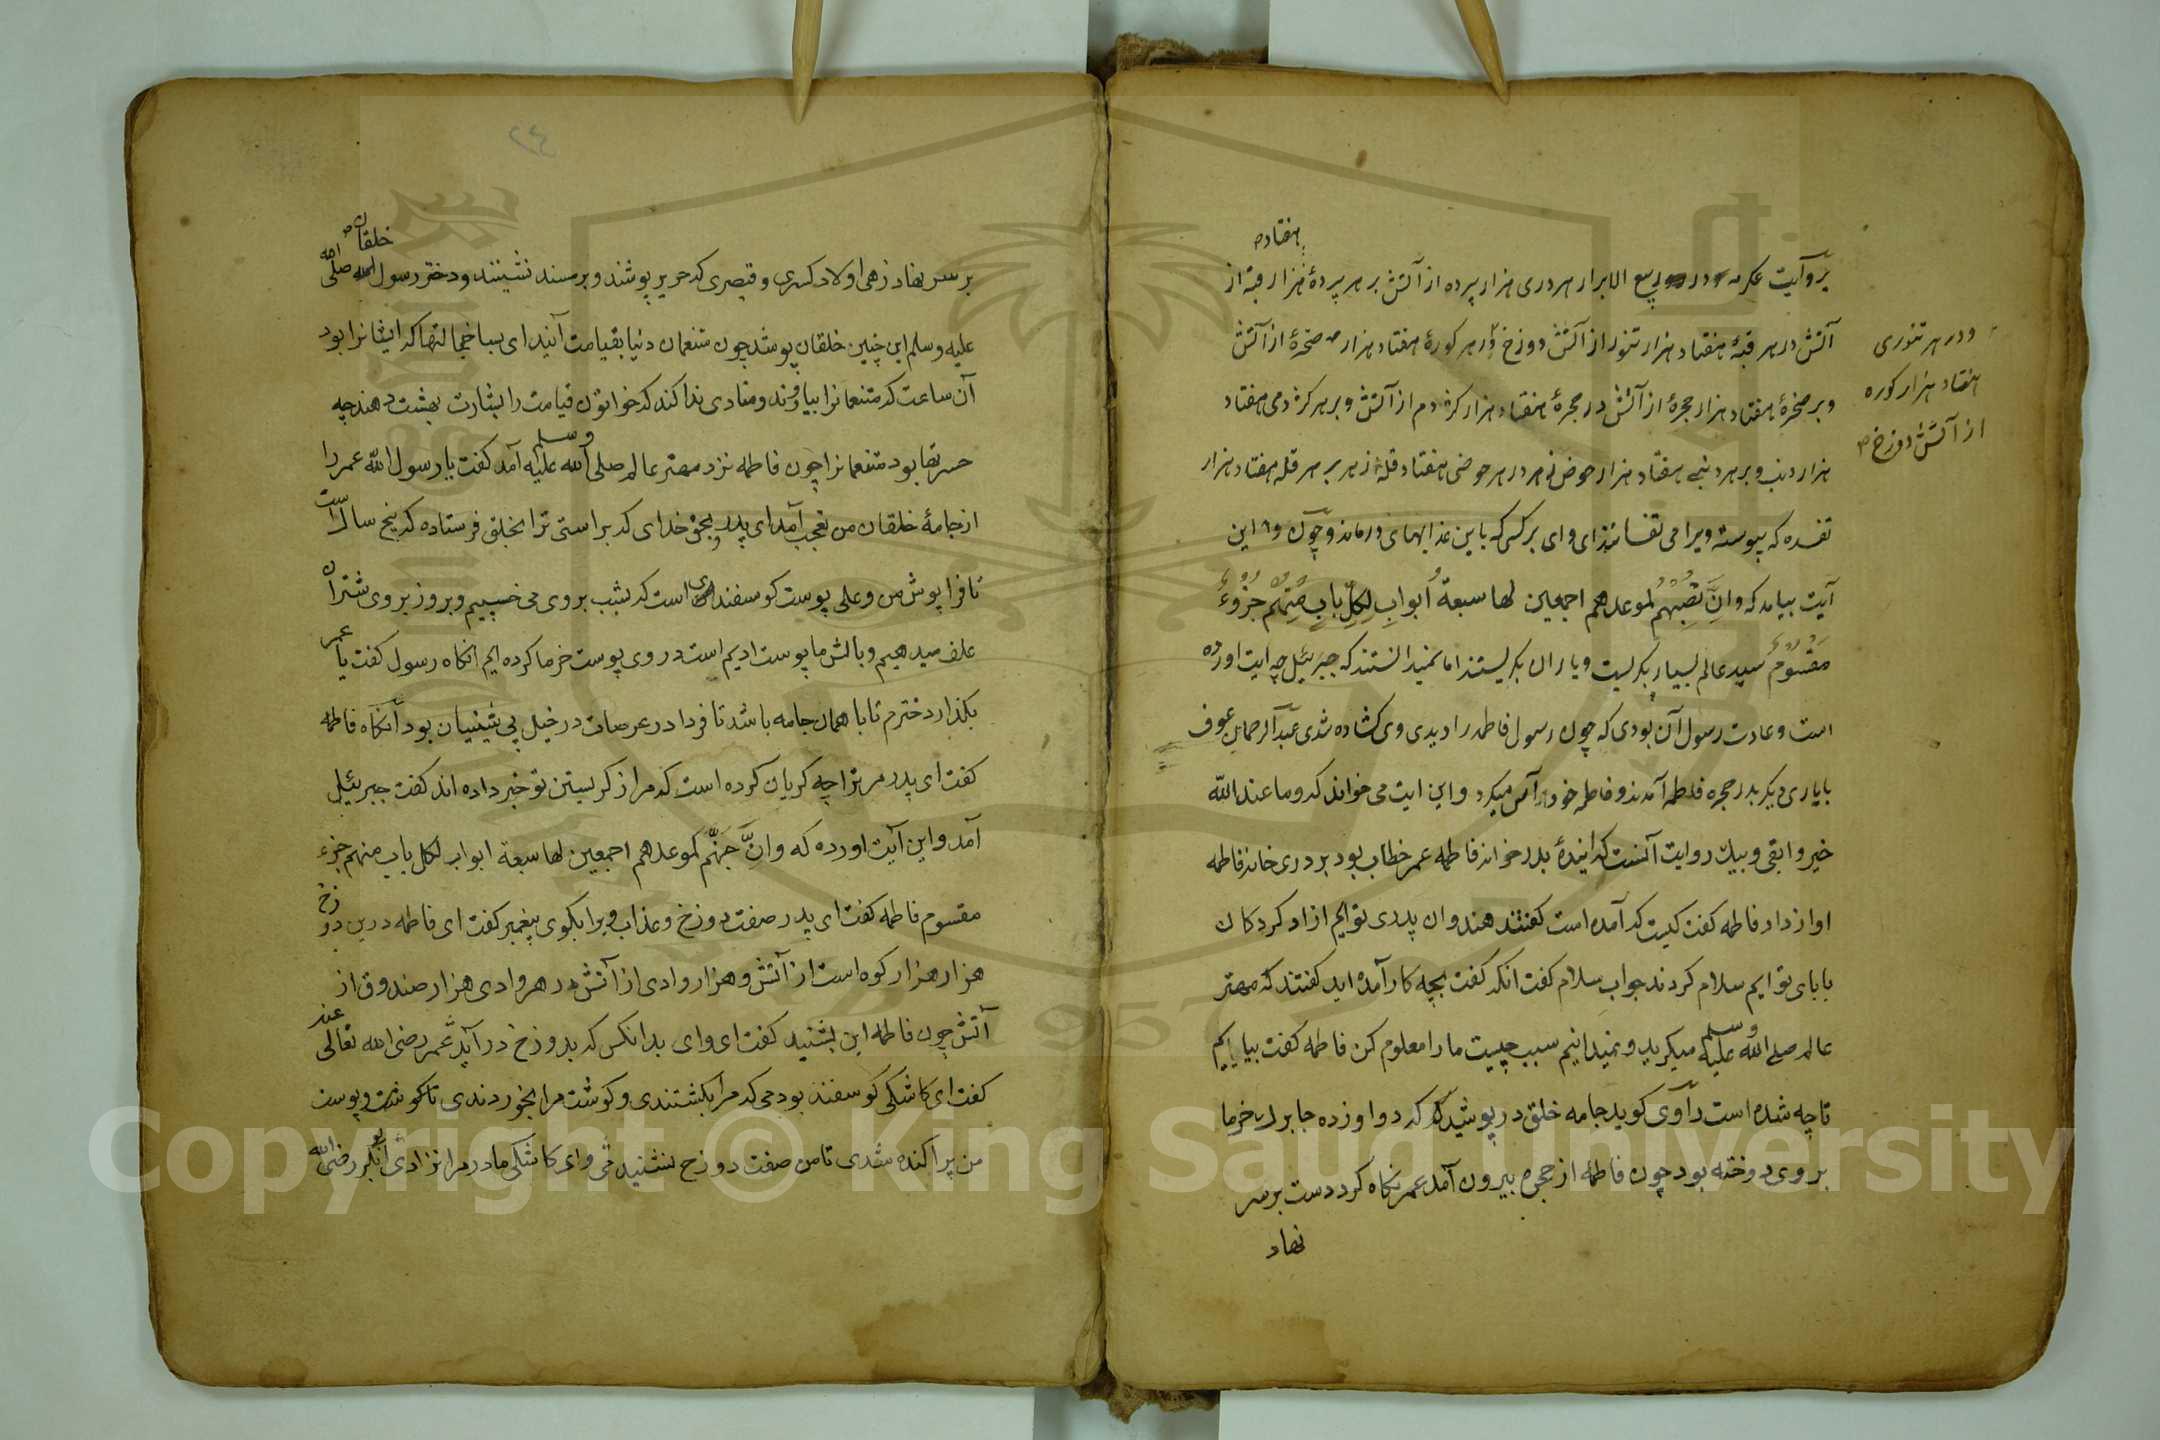 هفتاد
بروآیت عکرمه در ربیع الابرار هر دری هزار پرده از آتش بر هر پردهٔ هزار قبهٔ از
آتش در هر قبهٔ هفتاد هزار تنور از آتش دوزخ و در هر کورهٔ هفتاد هزار صخرهٔ از آتش
و بر صخرهٔ هفتاد هزار حجرهٔ از آتش در حجرهٔ هفتاد هزار کژدم از آتش و بر هر کژدمی هفتاد
هزار دنب و بر هر دنبی هفتاد هزار حوض زهر در هر حوضی هفتاد قلهٔ زهر بر هر قله هفتاد هزار
که پیوسته ویرا می ای وای بر کسی که باین عذابهای درماند و چون این
آیت بیامد که وان لموعدهم اجمعین لها سبعة ابواب لكل باب منهم جزء
مقسوم سید عالم بسیار بگریست ویاران بگریستند اما نمیدانستند که جبرئیل چه ایت اورده
است و عادت رسول آن بودی که چون رسول فاطمه را دیدی وی کشاده شدی عبد الرحمن عوف
بایاری دیکر بدر حجره فاطمه آمدند و فاطمه خود را آس میکرد و این ایت می خواند که وما عند الله
خیر و ابقی و بیک روایت آنست که ایندهٔ بدر خوانه فاطمه عمر خطاب بود بر دری خانه فاطمه
اواز داد فاطمه کفت کیست که آمده است کفتند هندوان پدری توایم ازاد کردکان
بابای توایم سلام کردند جواب سلام کفت انکه کفت بچه کار آمده اید کفتند که مهتر
عالم صلی الله علیه وسلم میکرید و نمیدانیم سبب چیست ما را معلوم کن فاطمه کفت بیایم
تا چه شده است راوی کوید جامه خلق در پوشید که دوازده جا برک خرما
بر وی دوخته بود چون فاطمه از حجره بیرون آمد عمر نکاه کرد دست برسر
نهاد
ودر هر تنوری
هفتاد هزار کوره
از آتش دوزخ
٢٤
خلقان
بر سر نهاد زهی اولاد کسری و قیصری که حریر پوشند و بر مسند نشینند و دختر رسول الله صلی الله
علیه وسلم این چنین خلقان پوشد چون متنعمان دنیا بقیامت آیند ای بسا خجالتها که ایشانرا بود
آن ساعت که متنعمانرا بیاورند و منادی ندا کند که خواتون قیامت را بشارت بهشت دهند چه
حسرتها بود متنعمانرا چون فاطمه نزد مهتر عالم صلی الله علیه وسلم آمد کفت یا رسول الله عمر را
از جامهٔ خلقان من تعجب آمد ای پدر بحق خدای که براستی ترا بخلق فرستاده که پنج سالست
تا فراپوش من و علی پوست کوسفندی است که بشب بروی می خسپیم و بروز بروی شتران
علف میدهیم و بالش ما پوست ادیم است در وی پوست خرما کرده ایم انکاه رسول کفت یا عمر
بکذار دخترم تا با همان جامه باشد تا فردا در عرصات در خیل پیشینیان بود آنکاه فاطمه
کفت ای پدر مر ترا چه کریان کرده است که مرا از کریستن تو خبر داده اند کفت جبرئیل
آمد و این آیت اورده که وانَّ جهنّم لموعدهم اجمعین لها سبعة ابواب لكل باب منهم جزء
مقسوم فاطمه کفت ای پدر صفت دوزخ و عذاب ویرا بکوی پیغمبر کفت ای فاطمه درین دوزخ
هزار هزار کوه است از آتش و هزار وادی از آتش در هر وادی هزار صندوق از
آتش چون فاطمه این بشنید کفت ای وای بدانکس که بدوزخ در آید عمر رضی الله تعالی عنه
کفت ای کاشکی کوسفند بودمی که مرا بکشتندی و کوشت مرا بخوردندی تا کوشت و پوست
من پراکنده شدی تا من صفت دوزخ نشنیدمی وای کاشکی مادر مرا نزادی ابوبکر رضی الله
Copyright © King Saud University
1957